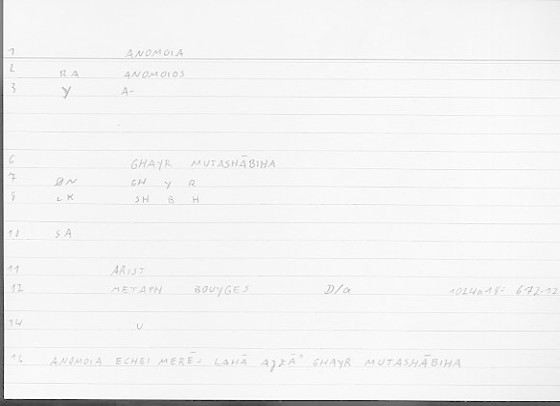 1 ANOMOIA
2 RA ANOMOIOS
3 Y A-
6 GHAYR MUTASHĀBIHA
7 GH Y R
8 LK SH B H
10 SA
11 ARIST
12 METAPH BOUYGES D/a 1024a18= 672.12
14 U
16 ANOMOIA ECHEI MERĒ= LAHĀ AJZĀʾ GHAYR MUTASHĀBIHA